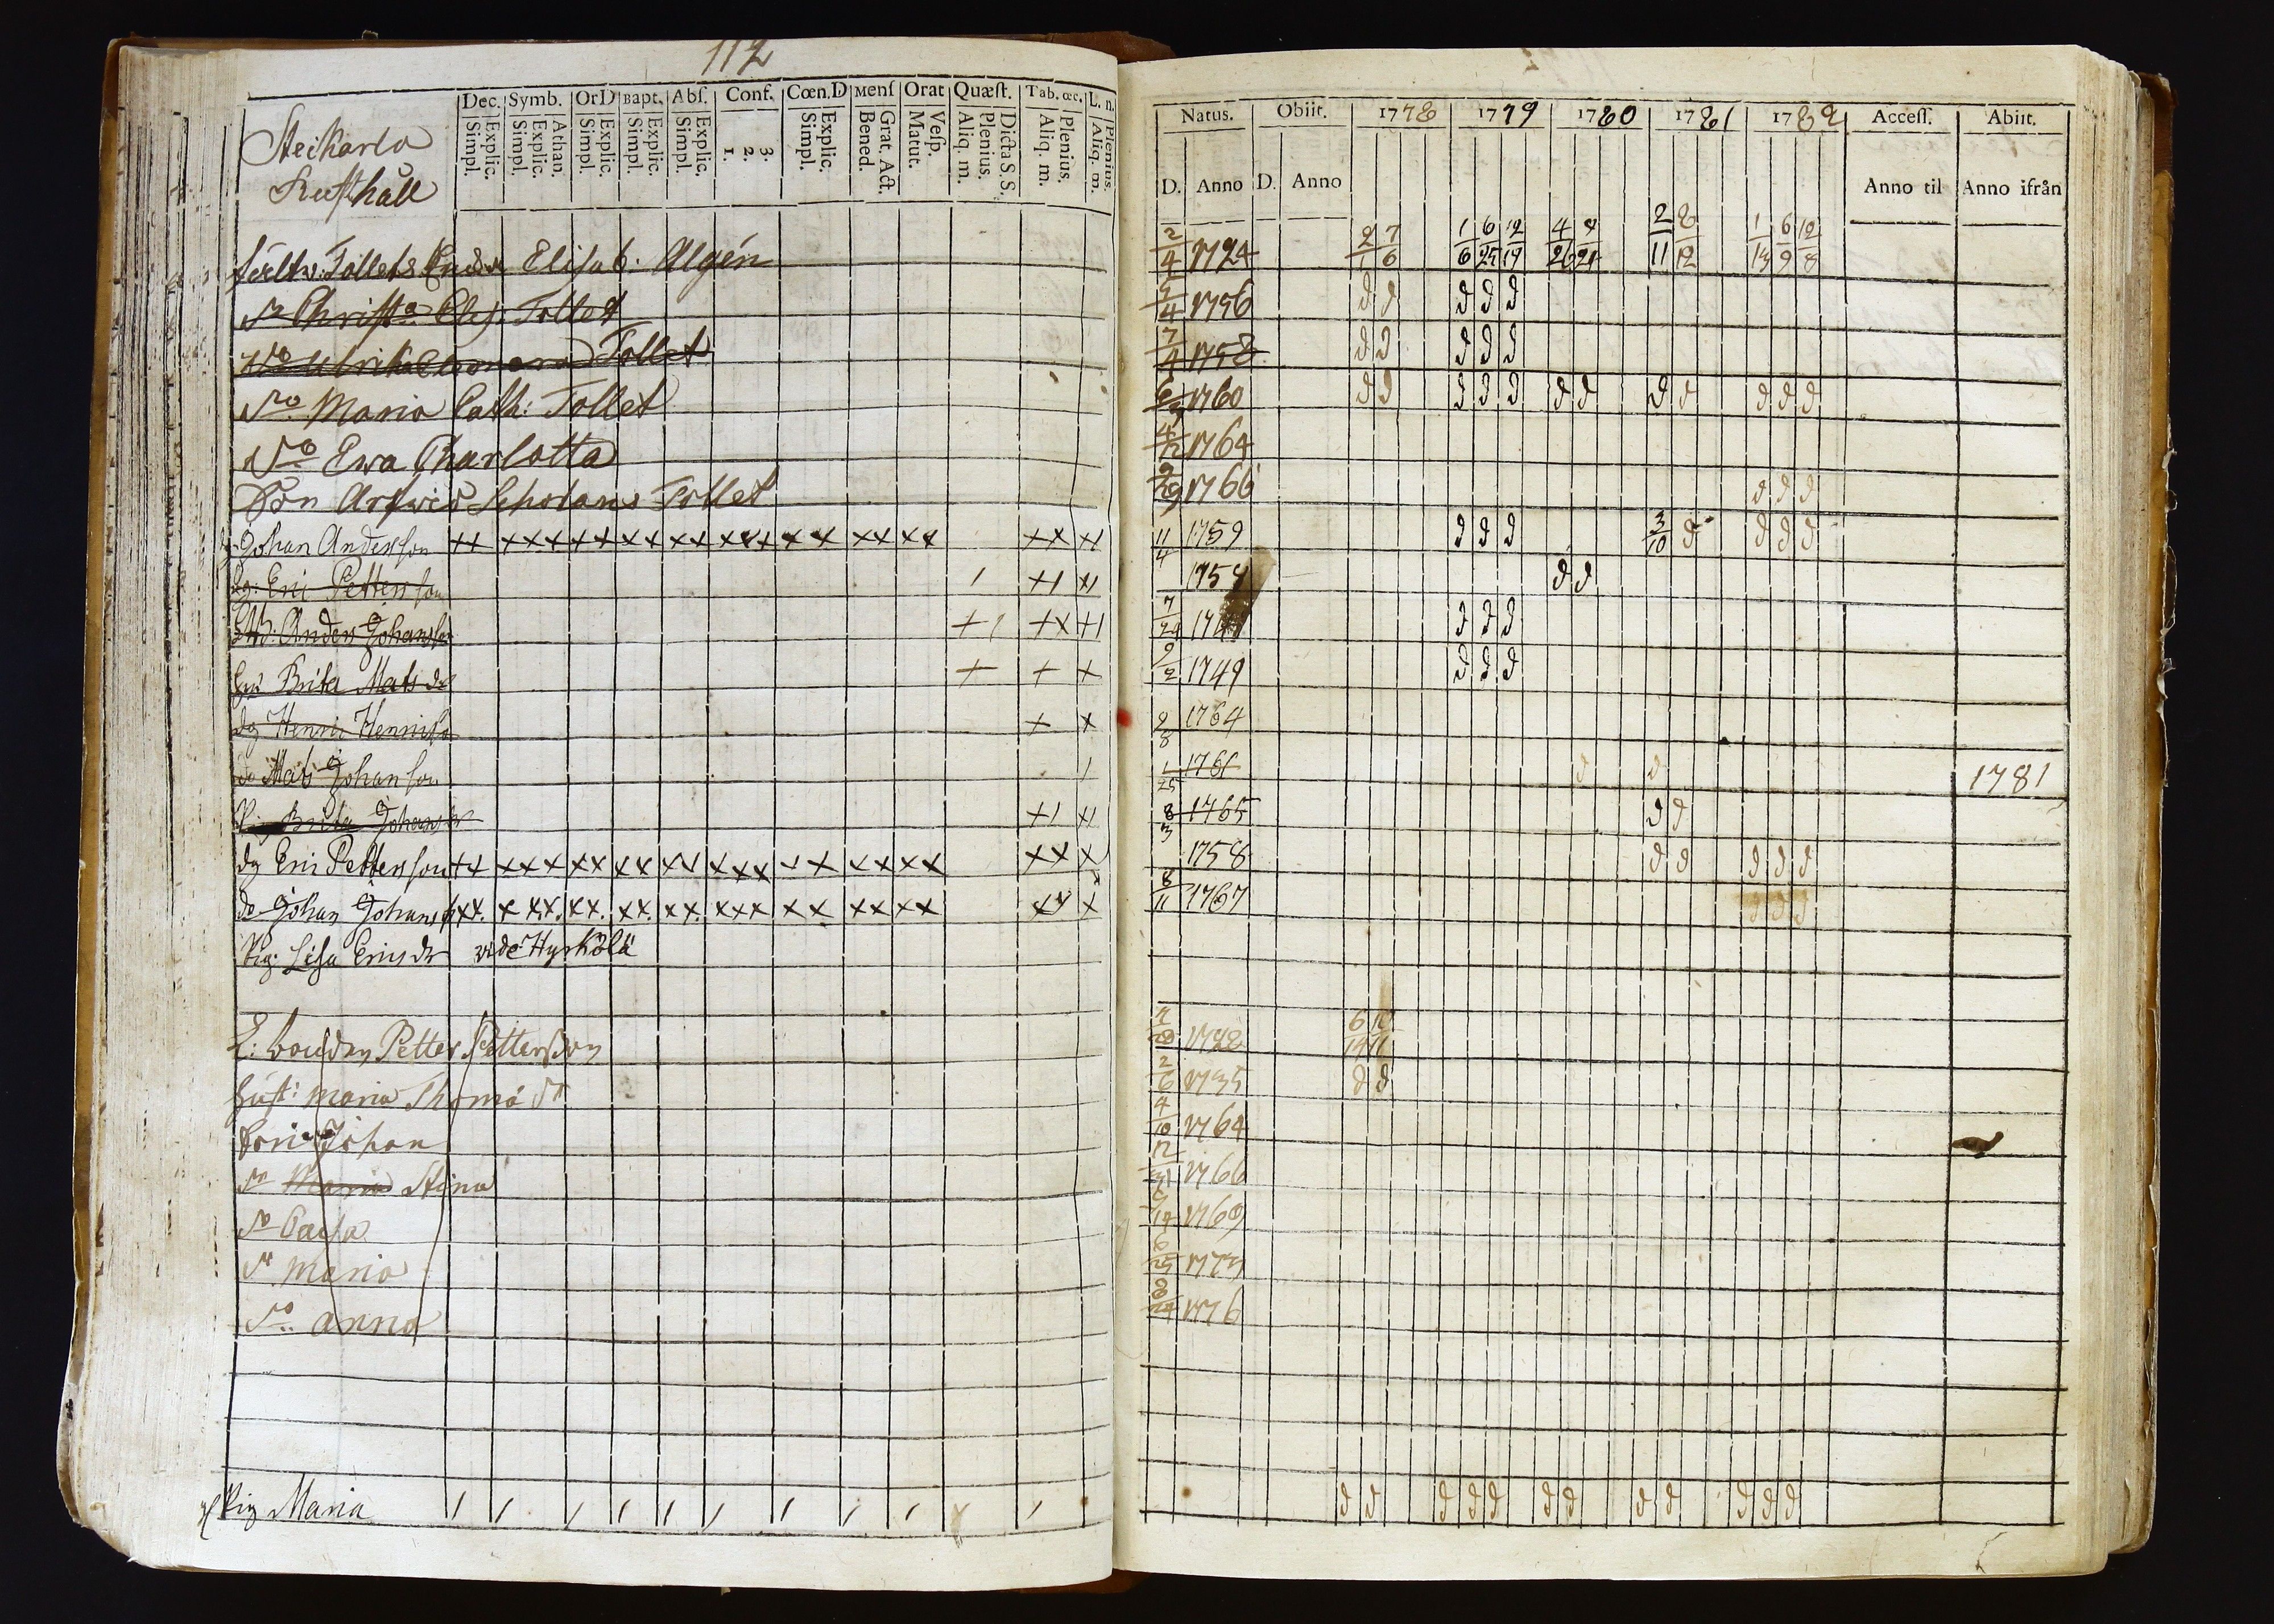 112
Dec. Symb. OrD Bapt. Abſ. Conf. Cœn.D Menſ Orat Quæſt. Tab. œc. L. n.
Explic. Simpl. Athan. Explic. Simpl. Explic. Simpl. Explic. Simpl. Explic. Simpl. 3. 2. 1. Explic. Simpl. Grat. Act. Bened. Veſp. Matut. Dicta S.S. Plenius. Aliq. m. Plenius. Aliq. m. Plenius. Aliq. m.
Steikarla
Rusthåll
Tollets Elisab. Algén
Dr Christ Elis. Tollet
Do Ulrika Eleonora Tollet
Do Maria Cath: Tollet
Do Ewa Charlotta
Son Arfwid Tollet
Johan Andersson
dg: Eric Pettersson
Anders Johansson
hu Brita Mats dr
dg Henric Henricss
do Mats Johansson
Pig Brita Johans dr
dg Eric Pettersson
do Johan Johanss
Pig: Lisa Erics dr vide Hyrkölä
Petter Pettersson
hust: Maria Thoma dr
Son Johan
Dr Maria Stina
Dr Caisa
Dr Maria
Do Anna
Pig Maria
Natus. Obiit. 1778 1779 1780 1781 1782 Acceſſ. Abiit.
D. Anno D. Anno Anno til Anno ifrån
2/4 1724 2/1 7/6 1/6 6/25 12/19 4/26 2/11 8/12 1/13 6/9 12/8
5/4 1756 d d d d d
7/4 1758 d d d d d
1760 d d d d d d d d d d d d
4/12 1764
9/29 1766 d d d
11/4 1759 d d d 3/10 d d d d
1754 d d
7/24 d d d
9/2 1749 d d d
2/8 1764
1/25 1761 d d 1781
8/3 1765 d d
1758 d d d d d
8/11 1767 d d d
1728 6/14 12/11
2/6 1735 d d
4/10 1764
12/31 1766
9/14 1769
6/25 1773
8/24 1776
d d d d d d d d d d d d